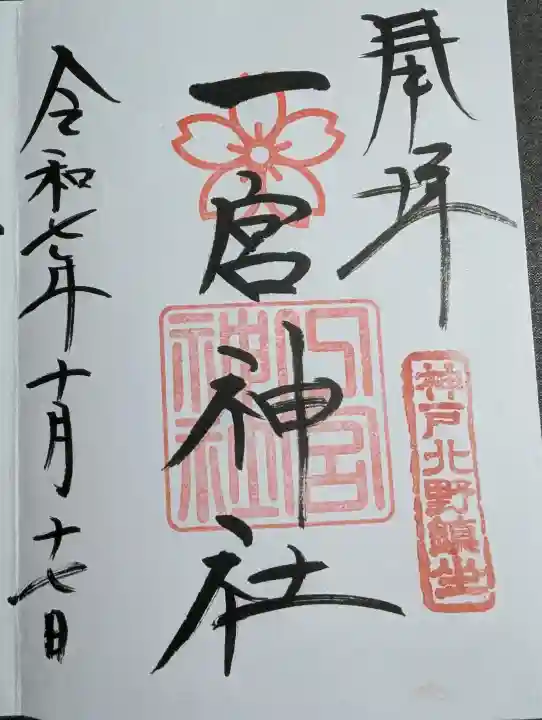 奉拝
神戸北野鎮坐
一宮神社
一宮神社
令和七年十月十七日